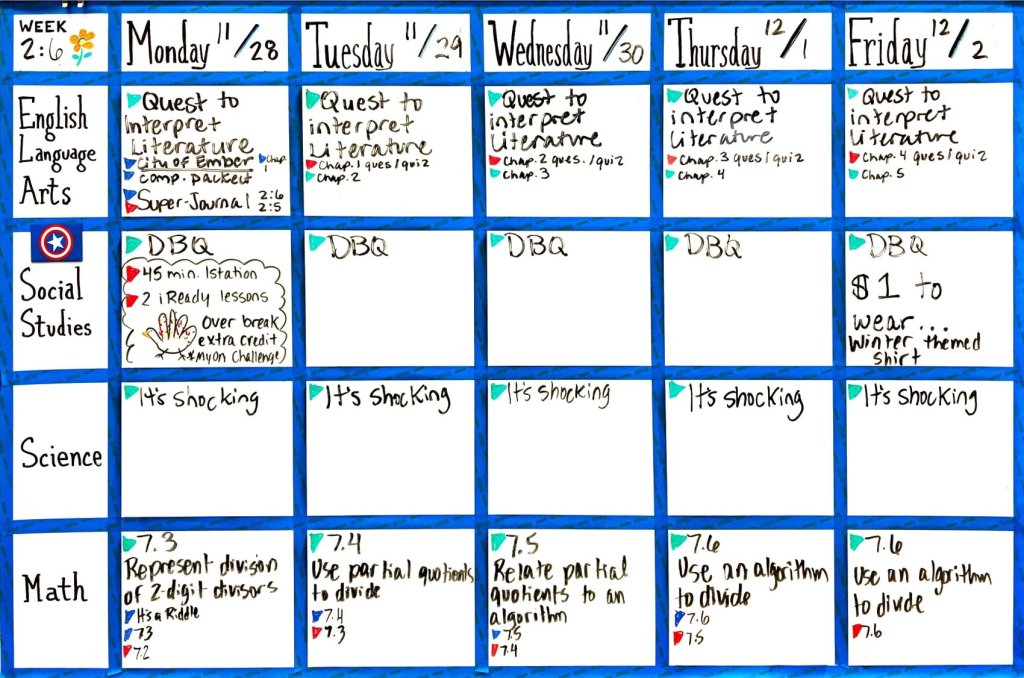 WEEK
2:6
Monday 11/28
Tuesday 11/29
Wednesday 11/30
Thursday 12/1
Friday 12/2
English
Language
Arts
Quest to
Interpret
Literature
City of Ember Chap. 1
Comp. packet
Super-Journal 2:6
2:5
Quest to
interpret
Literature
Chap. 1 ques/quiz
Chap. 2
Quest to
interpret
Literature
Chap. 2 ques./quiz
Chap. 3
Quest to
interpret
Literature
Chap. 3 ques/quiz
Chap. 4
Quest to
interpret
Literature
Chap. 4 ques/quiz
Chap. 5
Social
Studies
DBQ
45 min. Istation
2 iReady lessons
Over break
extra credit
*Myon Challenge
DBQ
DBQ
DBQ
DBQ
$1 to
wear...
Winter themed
shirt
Science
It's shocking
It's shocking
It's shocking
It's shocking
It's shocking
Math
7.3
Represent division
of 2-digit divisors
It's a Riddle
7.3
7.2
7.4
Use partial quotients
to divide
7.4
7.3
7.5
Relate partial
quotients to an
algorithm
7.5
7.4
7.6
Use an algorithm
to divide
7.6
7.5
7.6
Use an algorithm
to divide
7.6